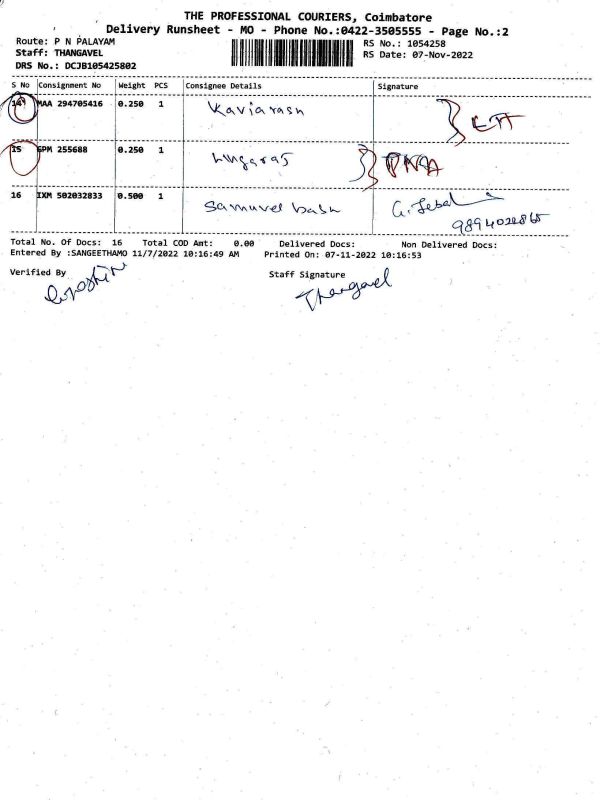 THE PROFESSIONAL COURIERS, Coimbatore
Delivery Runsheet - MO - Phone No.:0422-3505555 - Page No.:2
Route: P N PALAYAM
Staff: THANGAVEL
DRS No.: DCJB105425802
RS No.: 1054258
RS Date: 07-Nov-2022
S No Consignment No Weight PCS Consignee Details Signature
14 MAA 294705416 0.250 1 Kaviarasu
15 GPM 255688 0.250 1 Lingaraj
16 IXM 502032833 0.500 1 Samuvel babu
Total No. Of Docs: 16 Total COD Amt: 0.00 Delivered Docs: Non Delivered Docs:
Entered By :SANGEETHAMO 11/7/2022 10:16:49 AM Printed On: 07-11-2022 10:16:53
Verified By Staff Signature
Thangavel